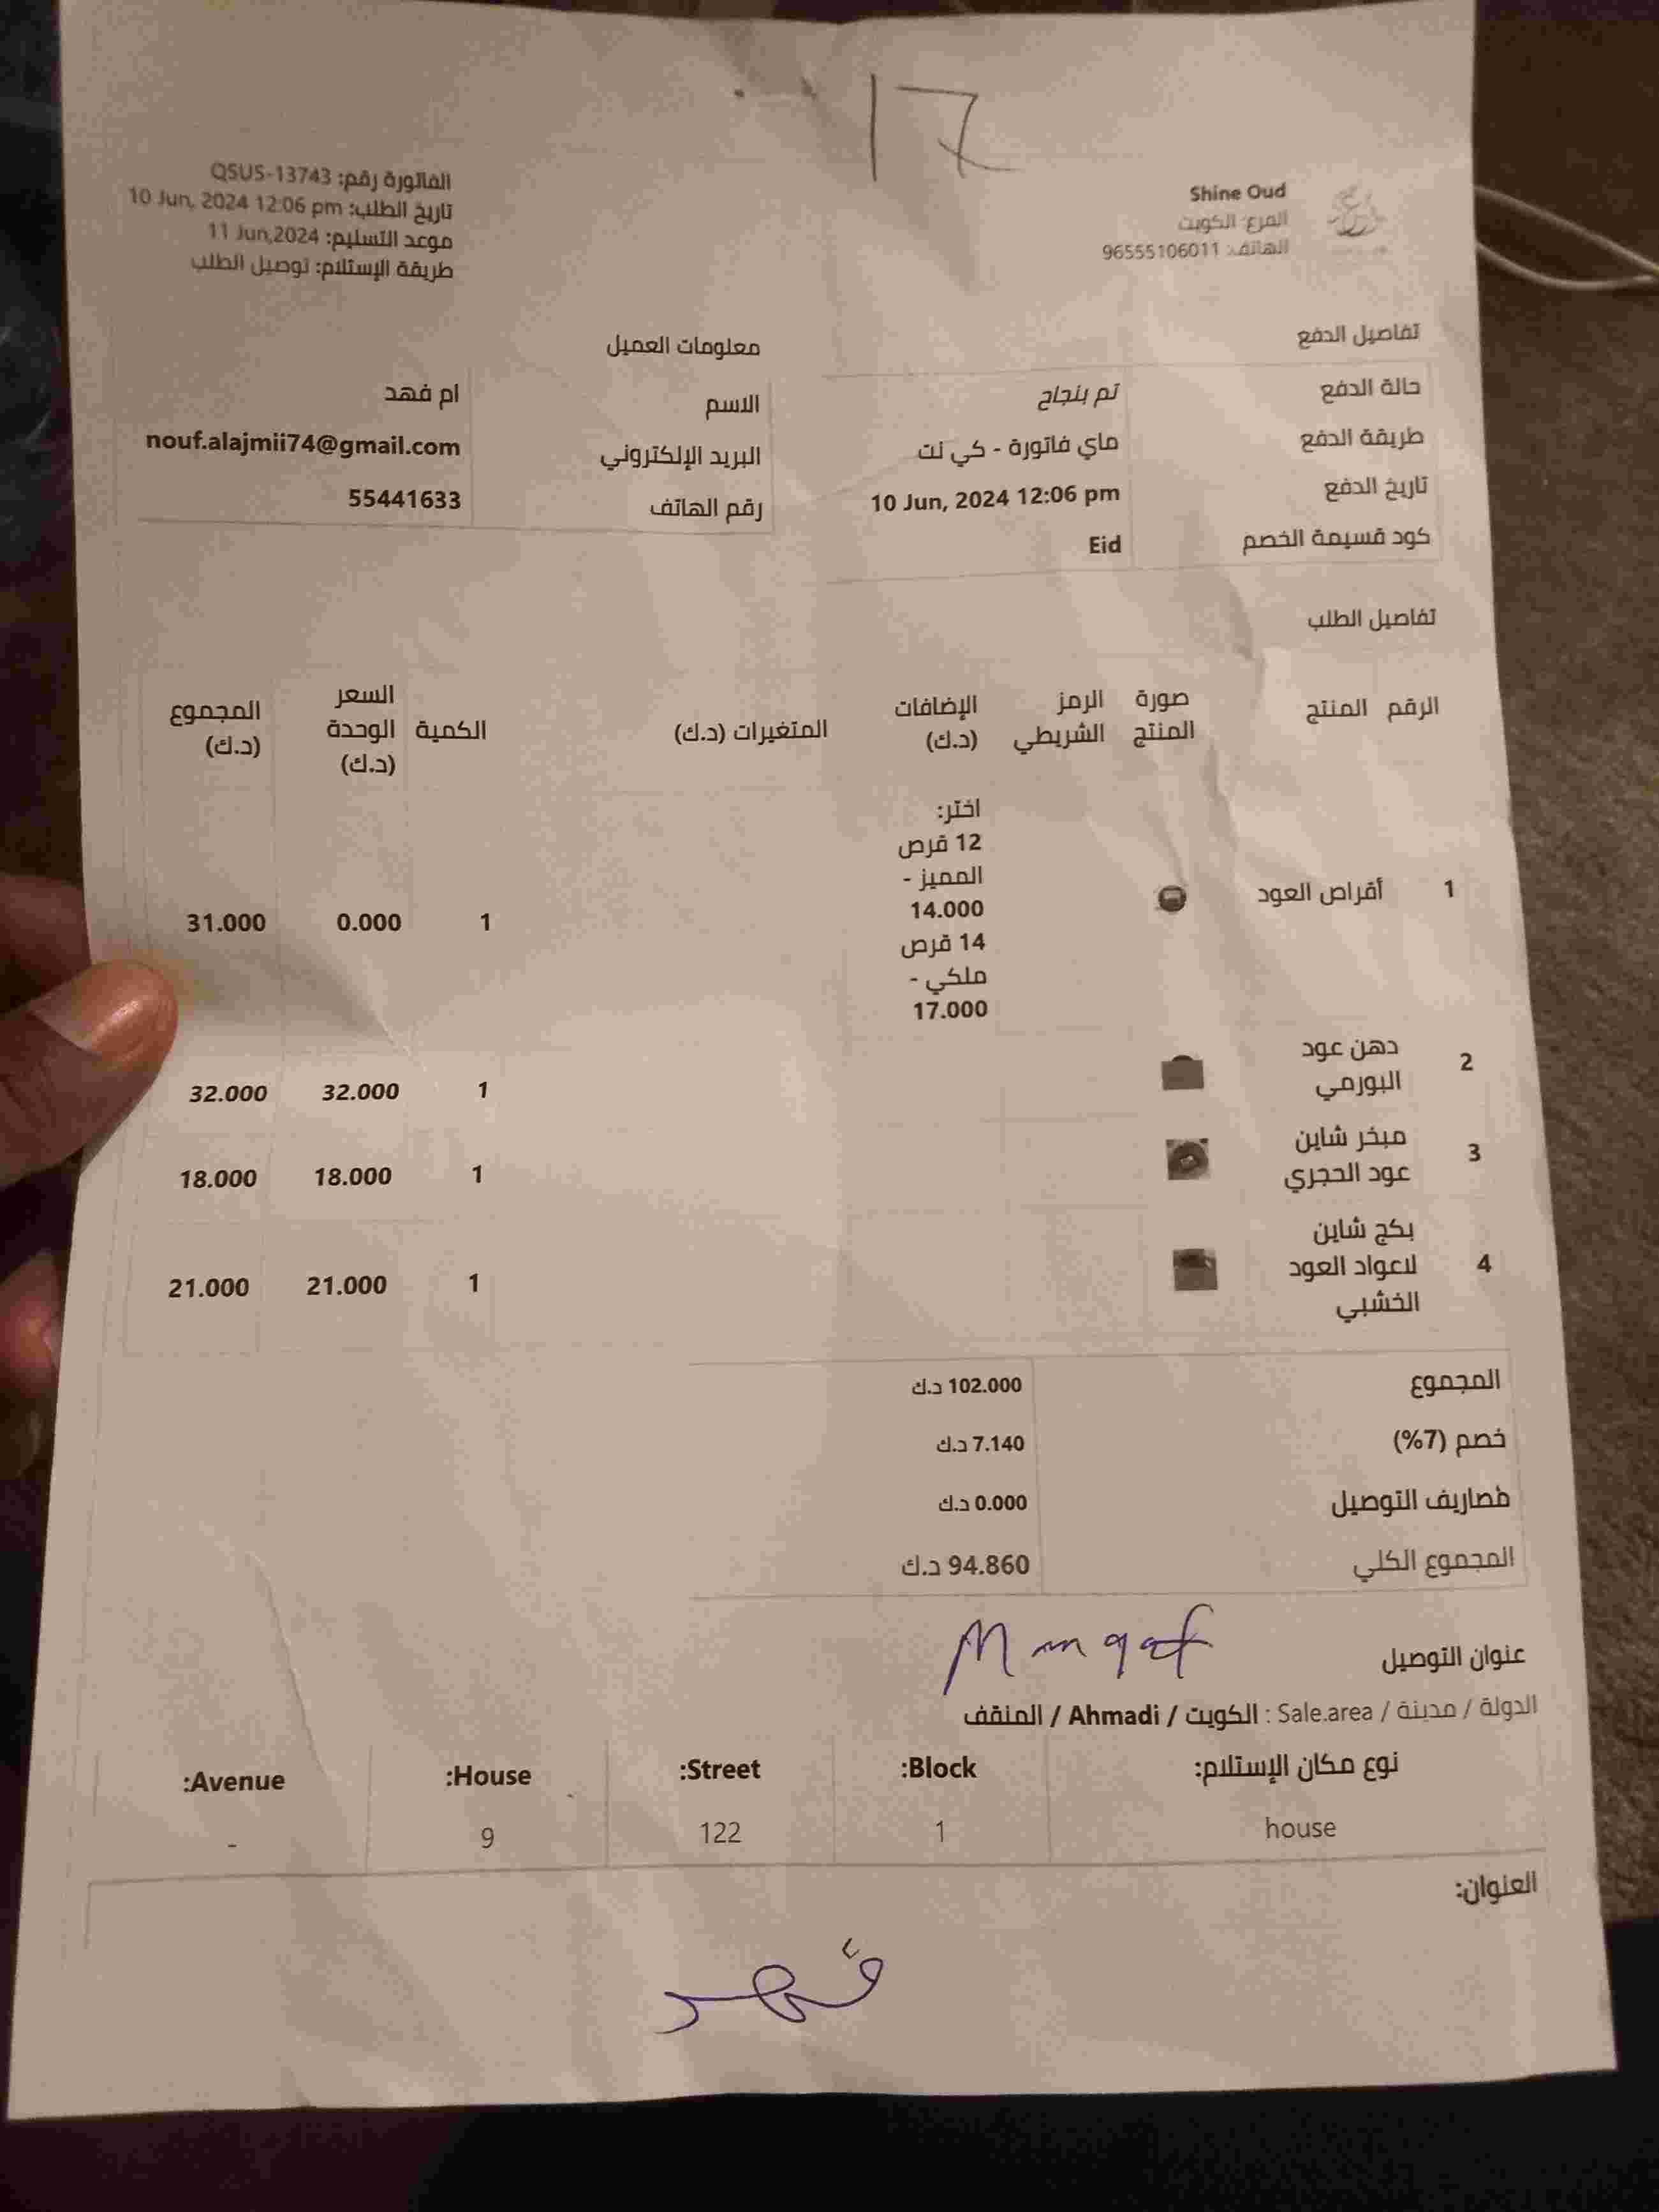 17
Shine Oud
الفرع: الكويت
الهاتف: 96555106011
الفاتورة رقم: QSUS-13743
تاريخ الطلب: 10 Jun, 2024 12:06 pm
موعد التسليم: 11 Jun,2024
طريقة الإستلام: توصيل الطلب
تفاصيل الدفع
حالة الدفع تم بنجاح
طريقة الدفع ماي فاتورة - كي نت
تاريخ الدفع 10 Jun, 2024 12:06 pm
كود قسيمة الخصم Eid
معلومات العميل
الاسم ام فهد
البريد الإلكتروني nouf.alajmii74@gmail.com
رقم الهاتف 55441633
تفاصيل الطلب
الرقم المنتج صورة المنتج الرمز الشريطي الإضافات (د.ك) المتغيرات (د.ك) الكمية السعر الوحدة (د.ك) المجموع (د.ك)
اختر:
12 قرص
المميز -
14.000
14 قرص
ملكي -
17.000
1 أقراص العود 1 0.000 31.000
2 دهن عود البورمي 1 32.000 32.000
3 مبخر شاين عود الحجري 1 18.000 18.000
4 بكج شاين لاعواد العود الخشبي 1 21.000 21.000
المجموع 102.000 د.ك
خصم (7%) 7.140 د.ك
مصاريف التوصيل 0.000 د.ك
المجموع الكلي 94.860 د.ك
عنوان التوصيل Mangaf
الدولة / مدينة / Sale.area : الكويت / Ahmadi / المنقف
نوع مكان الإستلام: Block: Street: House: Avenue:
house 1 122 9 -
العنوان:
فهد